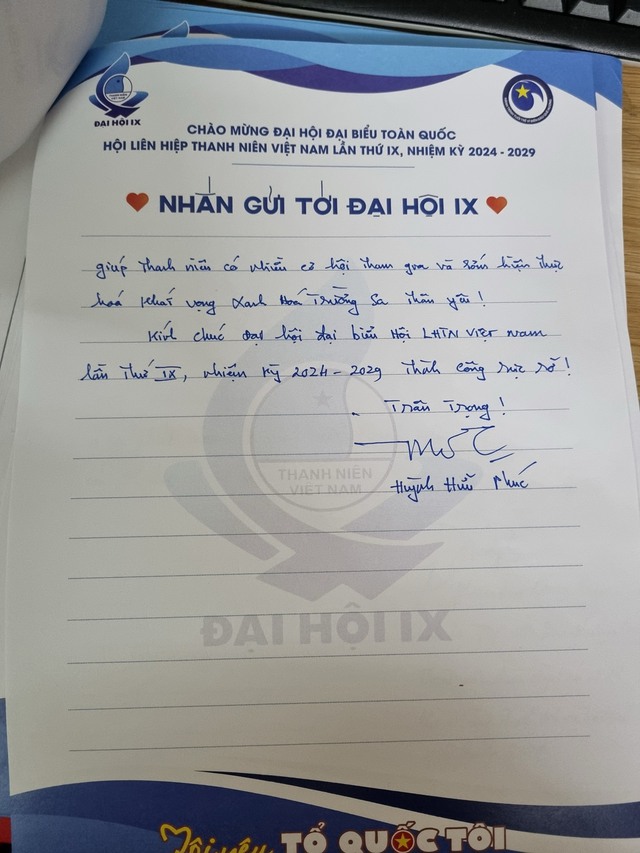 THANH NIÊN
VIỆT NAM
ĐẠI HỘI IX
CHÀO MỪNG ĐẠI HỘI ĐẠI BIỂU TOÀN QUỐC
HỘI LIÊN HIỆP THANH NIÊN VIỆT NAM LẦN THỨ IX, NHIỆM KỲ 2024 - 2029
NHẮN GỬI TỚI ĐẠI HỘI IX
giúp thanh niên có nhiều cơ hội tham gia và sớm hiện thực
hoá khát vọng xanh hoá Trường Sa thân yêu!
Kính chúc đại hội đại biểu Hội LHTN Việt Nam
lần thứ IX, nhiệm kỳ 2024 - 2029 thành công rực rỡ!
Trân Trọng!
Huỳnh Hữu Phúc
THANH NIÊN
VIỆT NAM
ĐẠI HỘI IX
Tôi yêu TỔ QUỐC TÔI